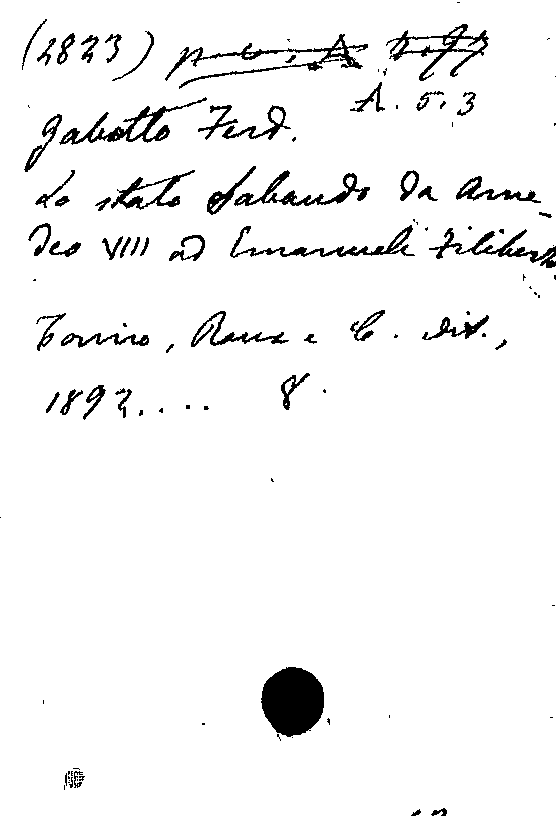 (2823)
A. 5. 3
Gabotto Ferd.
Lo stato Sabaudo da Ame-
deo VIII ad Emanuele Filiberto
Torino, Roux e C. edit.,
1892.... 8.